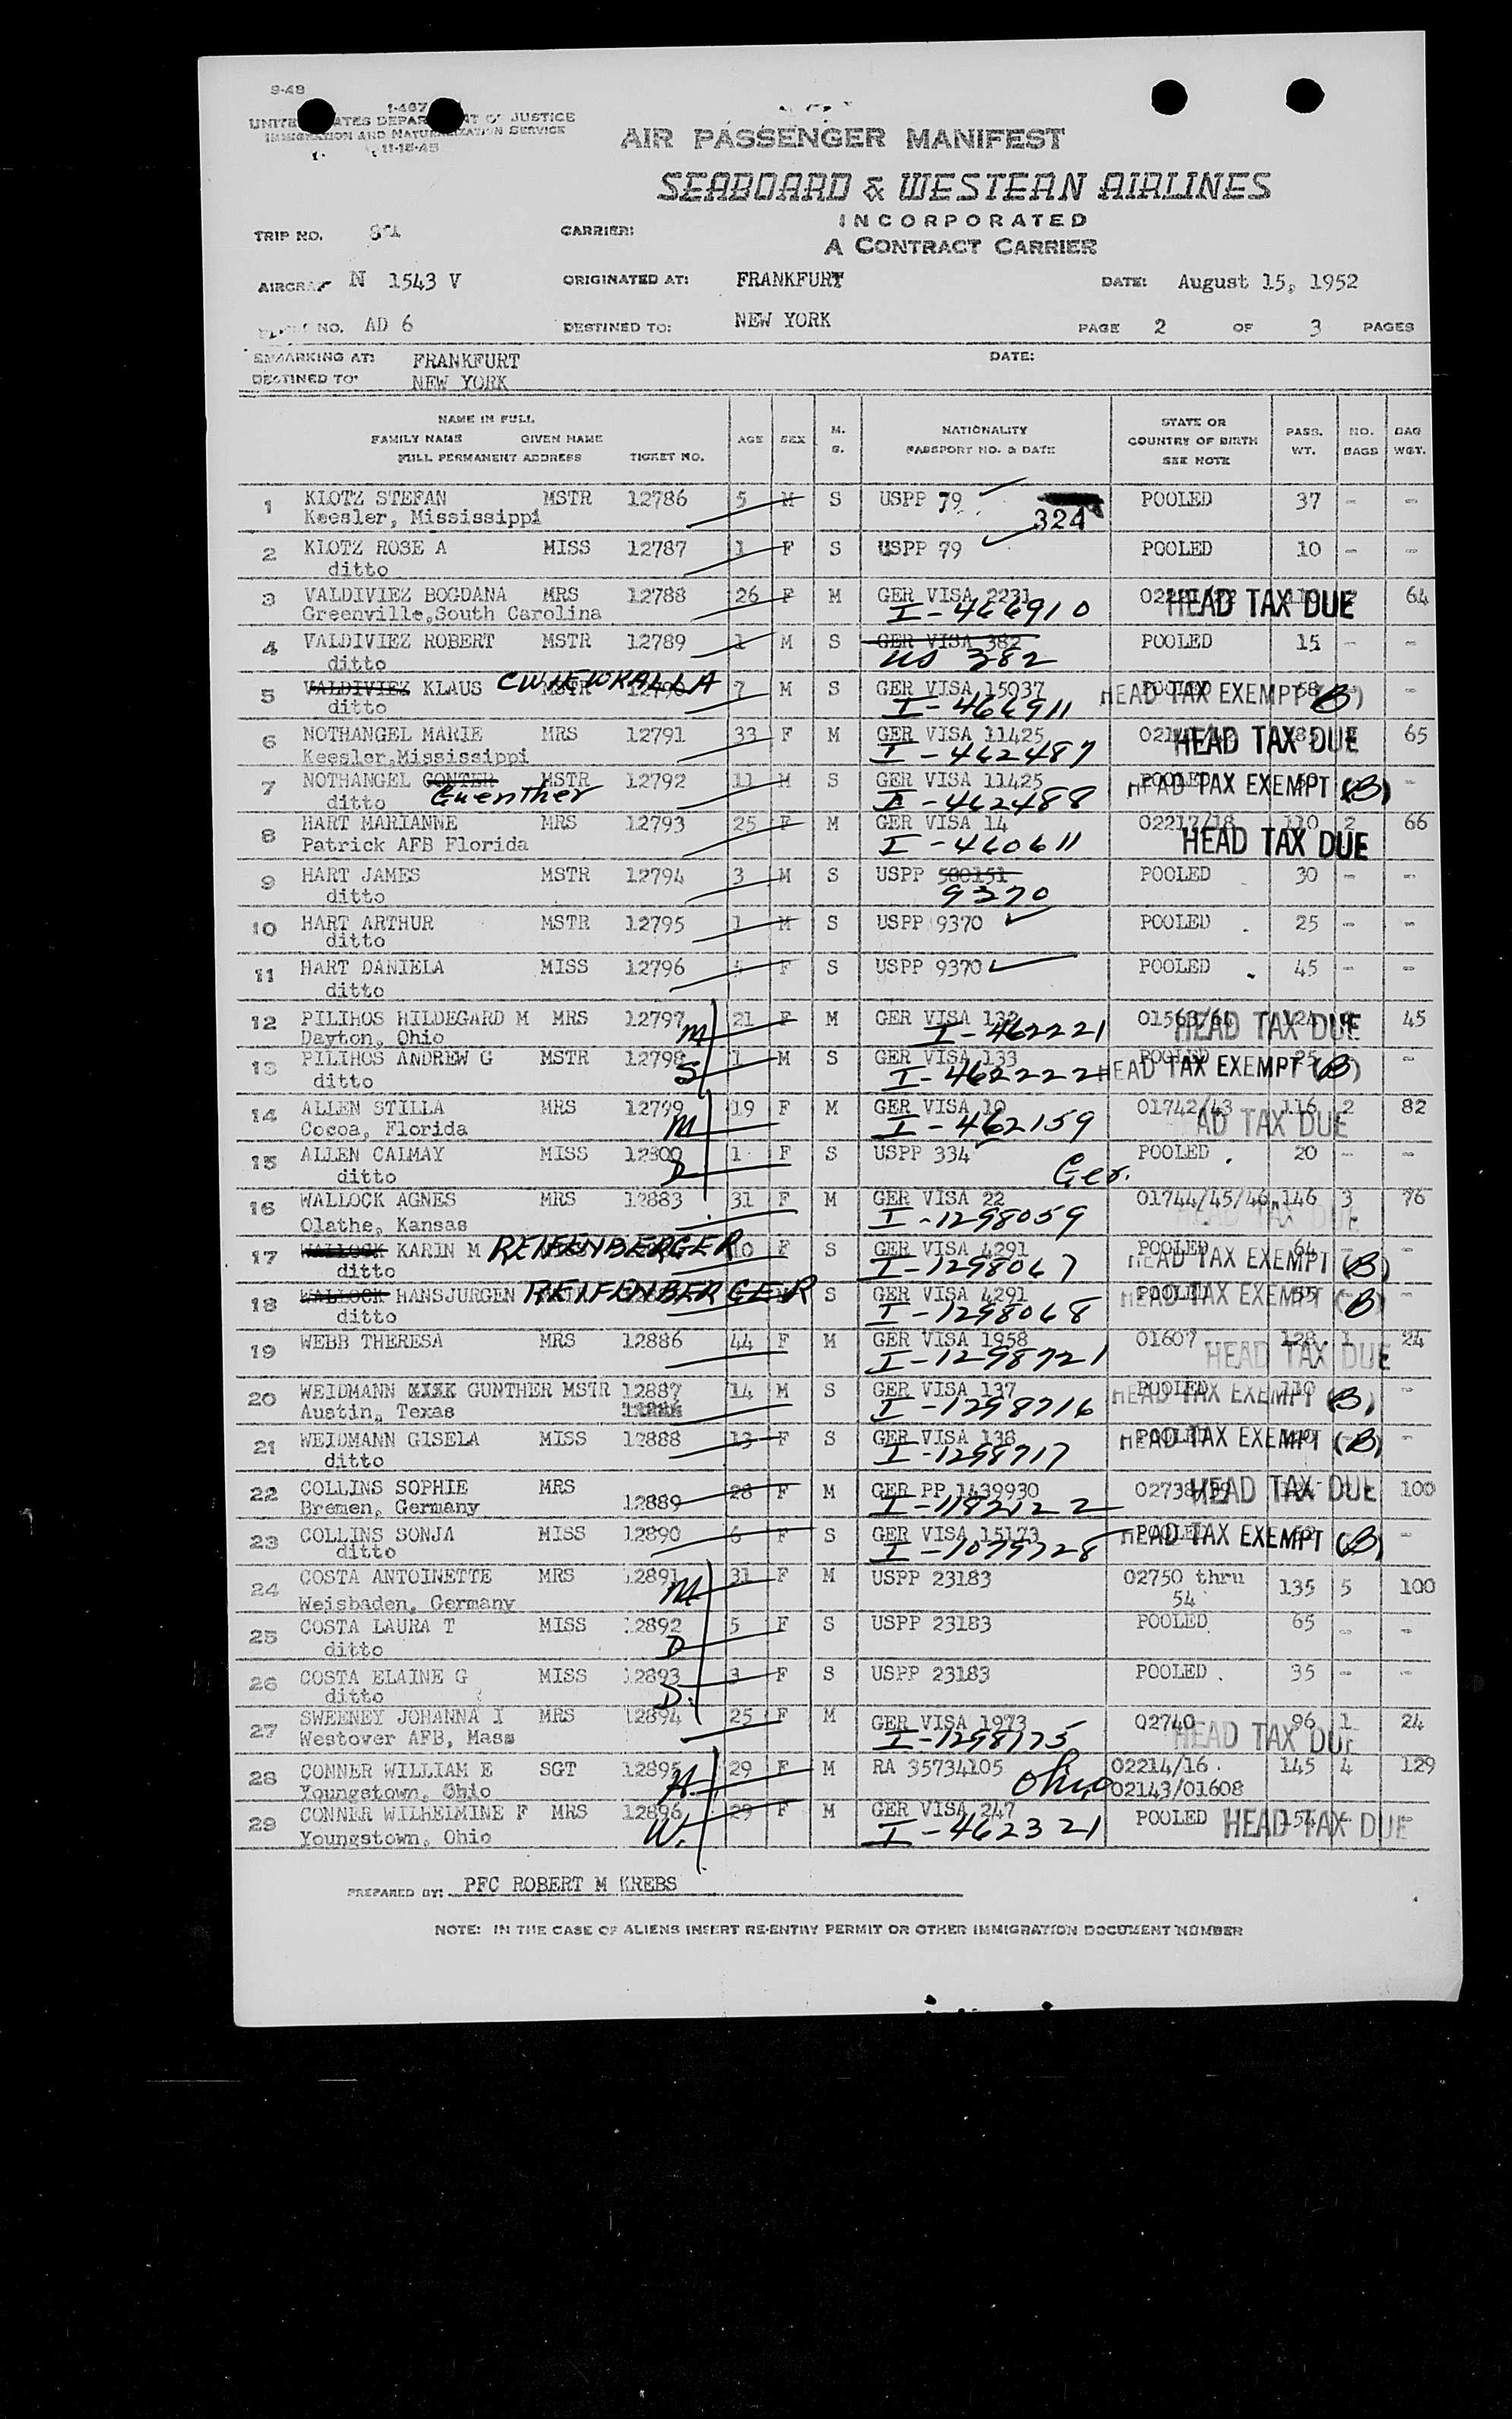 9-48
UNITED STATES DEPARTMENT OF JUSTICE
IMMIGRATION AND NATURALIZATION SERVICE
11-15-45
AIR PASSENGER MANIFEST
SEABOARD & WESTERN AIRLINES
INCORPORATED
A CONTRACT CARRIER
TRIP NO. CARRIER:
AIRCRAFT N 1543 V ORIGINATED AT: FRANKFURT DATE: August 15, 1952
NO. AD 6 DESTINED TO: NEW YORK PAGE 2 OF 3 PAGES
EMBARKING AT: FRANKFURT DATE:
DESTINED TO: NEW YORK
NAME IN FULL
FAMILY NAME GIVEN NAME
FULL PERMANENT ADDRESS TICKET NO. AGE SEX M. S. NATIONALITY PASSPORT NO. & DATE STATE OR COUNTRY OF BIRTH SEE NOTE PASS. WT. NO. BAGS BAG WGT.
1 KLOTZ STEFAN MSTR 12786 5 M S USPP 79 POOLED 37 - -
Keesler, Mississippi 324
2 KLOTZ ROSE A MISS 12787 1 F S USPP 79 POOLED 10 - -
ditto
3 VALDIVIEZ BOGDANA MRS 12788 26 F M GER VISA 2231 HEAD TAX DUE 64
Greenville, South Carolina I-466910
4 VALDIVIEZ ROBERT MSTR 12789 1 M S GER VISA 382 POOLED 15 - -
ditto US 382
5 VALDIVIEZ KLAUS CWIEWKALLA MSTR 12790 7 M S GER VISA 15037 POOLED 58 HEAD TAX EXEMPT (B) -
ditto I-466911
6 NOTHANGEL MARIE MRS 12791 33 F M GER VISA 11425 HEAD TAX DUE 65
Keesler, Mississippi I-462487
7 NOTHANGEL GONTER MSTR 12792 11 M S GER VISA 11425 POOLED HEAD TAX EXEMPT (B) -
ditto Guenther I-462488
8 HART MARIANNE MRS 12793 25 F M GER VISA 14 02217/18 110 2 66
Patrick AFB Florida I-460611 HEAD TAX DUE
9 HART JAMES MSTR 12794 3 M S USPP 580151 POOLED 30 - -
ditto 9370
10 HART ARTHUR MSTR 12795 1 M S USPP 9370 POOLED 25 - -
ditto
11 HART DANIELA MISS 12796 F S USPP 9370 POOLED 45 - -
ditto
12 PILIHOS HILDEGARD M MRS 12797 21 F M GER VISA 132 HEAD TAX DUE 45
Dayton, Ohio M I-462221
13 PILIHOS ANDREW G MSTR 12798 1 M S GER VISA 133 POOLED 25 HEAD TAX EXEMPT (B) -
ditto S I-462222
14 ALLEN STILLA MRS 12799 19 F M GER VISA 10 01742/43 116 2 82
Cocoa, Florida M I-462159 HEAD TAX DUE
15 ALLEN CALMAY MISS 12800 1 F S USPP 334 POOLED 20 - -
ditto D Ger.
16 WALLOCK AGNES MRS 12883 31 F M GER VISA 22 01744/45/46 146 3 76
Olathe, Kansas I-1298059 HEAD TAX DUE
17 WALLOCK KARIN M REIFENBERGER 10 F S GER VISA 4291 POOLED 64 HEAD TAX EXEMPT (B) -
ditto I-1298067
18 WALLOCK HANSJURGEN REIFENBERGER S GER VISA 4291 POOLED 55 HEAD TAX EXEMPT (B) -
ditto I-1298068
19 WEBB THERESA MRS 12886 44 F M GER VISA 1958 01607 128 1 24
I-1298721 HEAD TAX DUE
20 WEIDMANN GUNTHER MSTR 12887 14 M S GER VISA 137 POOLED 110 HEAD TAX EXEMPT (B) -
Austin, Texas I-1298716
21 WEIDMANN GISELA MISS 12888 13 F S GER VISA 138 POOLED HEAD TAX EXEMPT (B) -
ditto I-1298717
22 COLLINS SOPHIE MRS 12889 28 F M GER PP 1439930 HEAD TAX DUE 100
Bremen, Germany I-1182122
23 COLLINS SONJA MISS 12890 6 F S GER VISA 15173 POOLED HEAD TAX EXEMPT (B) -
ditto I-1079728
24 COSTA ANTOINETTE MRS 12891 31 F M USPP 23183 02750 thru 54 135 5 100
Weisbaden, Germany M
25 COSTA LAURA T MISS 12892 5 F S USPP 23183 POOLED 65 - -
ditto D
26 COSTA ELAINE G MISS 12893 3 F S USPP 23183 POOLED 35 - -
ditto D.
27 SWEENEY JOHANNA I MRS 12894 25 F M GER VISA 1973 02740 96 1 24
Westover AFB, Mass I-1298175 HEAD TAX DUE
28 CONNER WILLIAM E SGT 12895 29 F M RA 35734105 02214/16 145 4 129
Youngstown, Ohio H. Ohio 02143/01608
29 CONNER WILHELMINE F MRS 12896 29 F M GER VISA 247 POOLED 154 HEAD TAX DUE
Youngstown, Ohio W. I-462321
PREPARED BY: PFC ROBERT M KREBS
NOTE: IN THE CASE OF ALIENS INSERT RE-ENTRY PERMIT OR OTHER IMMIGRATION DOCUMENT NUMBER